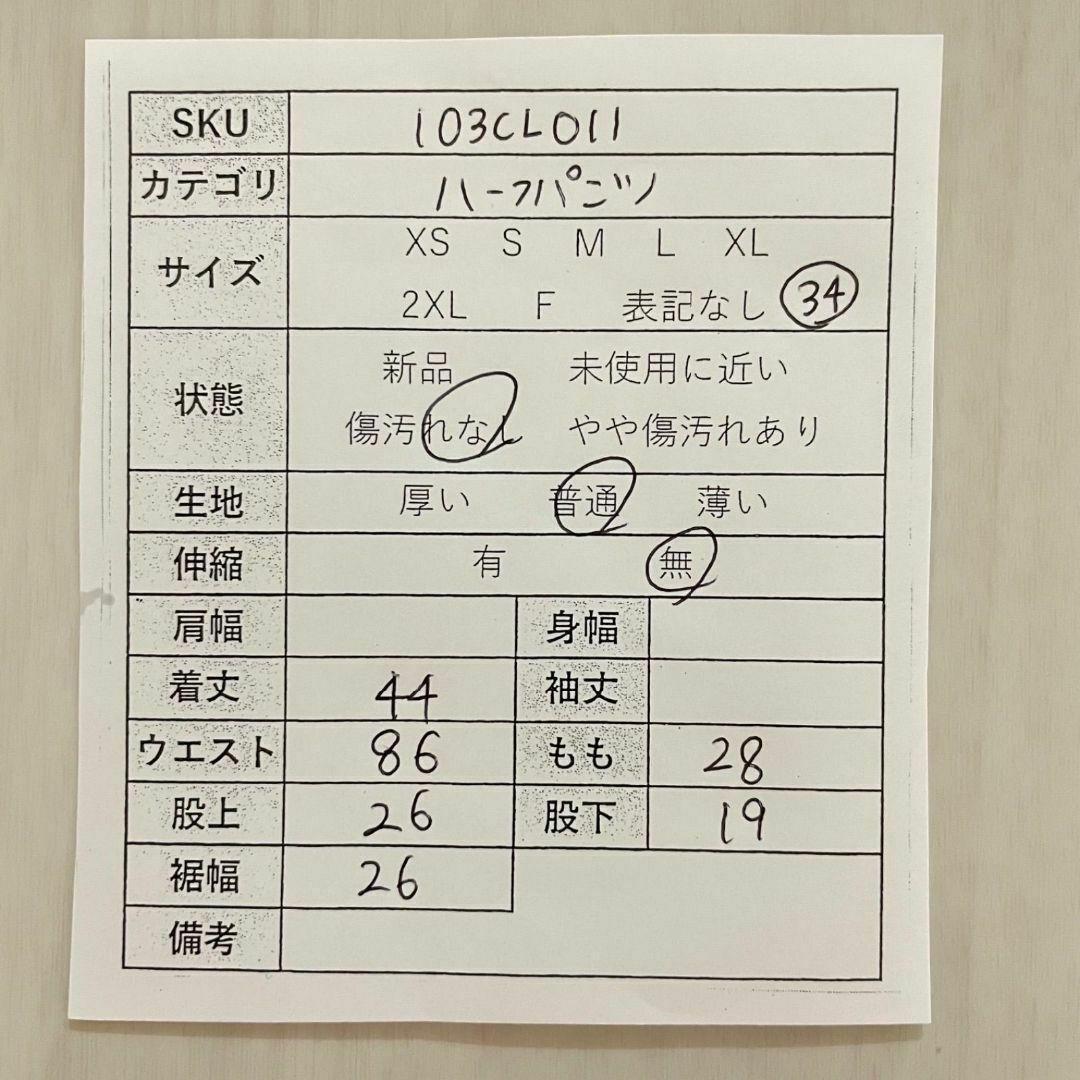 SKU 103CL011
カテゴリ ハーフパンツ
サイズ XS S M L XL
2XL F 表記なし 34
状態 新品 未使用に近い
傷汚れなし やや傷汚れあり
生地 厚い 普通 薄い
伸縮 有 無
肩幅 身幅
着丈 44 袖丈
ウエスト 86 もも 28
股上 26 股下 19
裾幅 26
備考